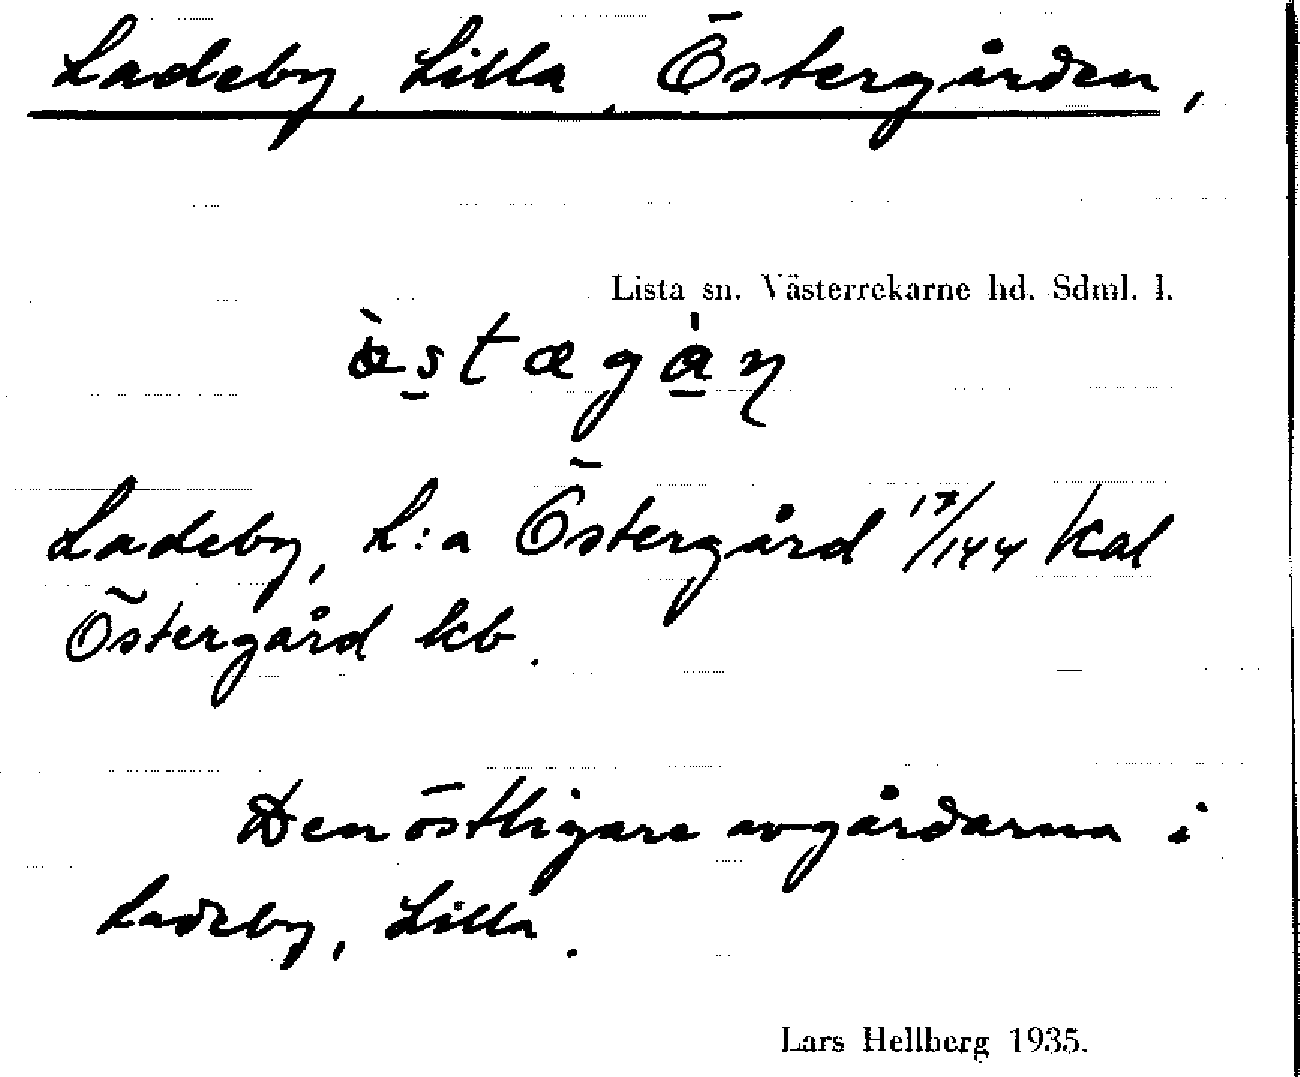 Ladeby, Lilla, Östergården,
Lista sn. Västerrekarne hd. Sdml. l.
Ladeby, L:a Östergård 17/144 kal
Östergård kb.
Den östligare av gårdarna i
Ladeby, Lilla.
Lars Hellberg 1935.